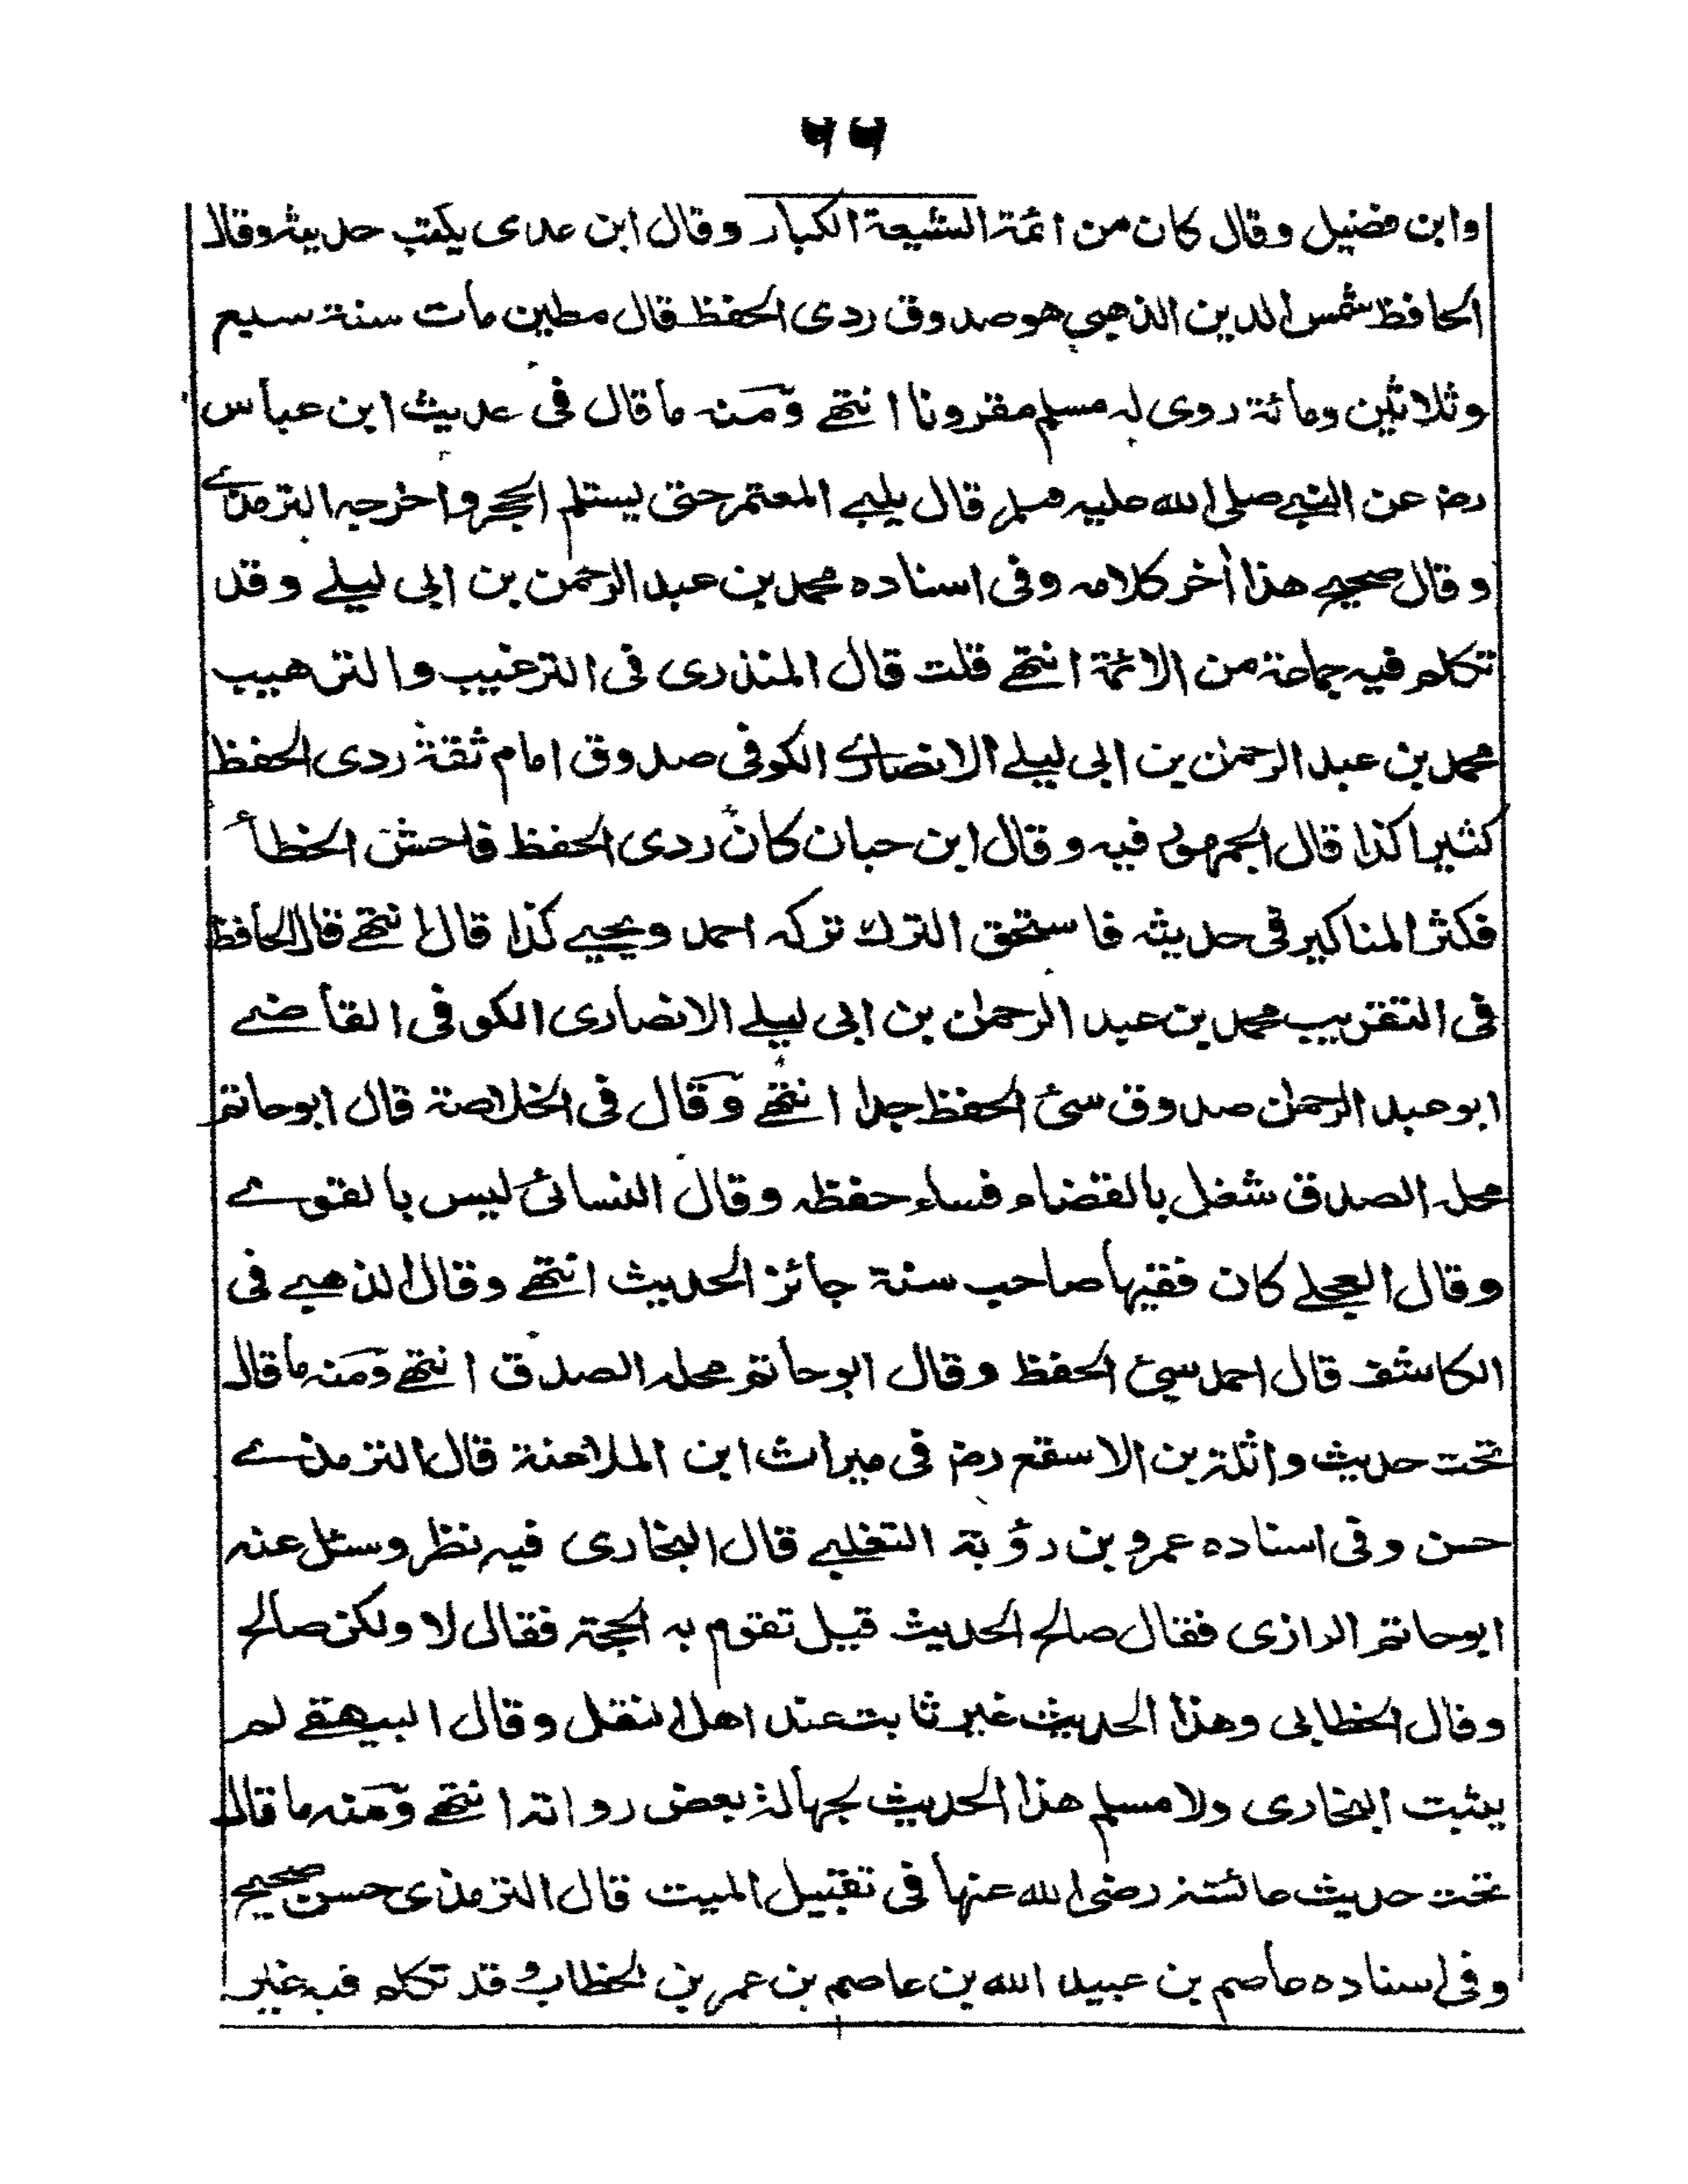 ٦٦
وابن فضيل وقال كان من ائمة الشيعة الكبار وقال ابن عدى يكتب حديثه وقال
الحافظ شمس الدين الذهبى هو صدوق ردى الحفظ قال مطين مات سنة سبع
وثلاثين ومائة روى له مسلم مقرونا انتهے ومنه ما قال فى حديث ابن عباس
رض عن النبے صلى الله عليه وسلم قال يلبے المعتمر حتى يستلم الحجر واخرجه الترمذے
وقال صحيح هذا أخر كلامه وفى اسناده محمد بن عبد الرحمن بن ابى ليلے وقد
تكلم فيه جماعة من الائمة انتهے قلت قال المنذرى فى الترغيب والترهيب
محمد بن عبد الرحمن بن ابى ليلے الانصارے الكوفى صدوق امام ثقة ردى الحفظ
كثيرا كذا قال الجمهور فيه وقال ابن حبان كان ردى الحفظ فاحش الخطأ
فكثر المناكير فى حديثه فاستحق الترك تركه احمد ويحيے كذا قال انتهے قال الحافظ
فى التقريب محمد بن عبد الرحمن بن ابى ليلے الانصارى الكوفى القاضے
ابو عبد الرحمن صدوق سئ الحفظ جدا انتهے وقال فى الخلاصة قال ابو حاتم
محله الصدق شغل بالقضاء فساء حفظه وقال النسائى ليس بالقوے
وقال العجلے كان فقيها صاحب سنة جائز الحديث انتهے وقال الذهبے فى
الكاشف قال احمد سئ الحفظ وقال ابو حاتم محله الصدق انتهے ومنه ما قال
تحت حديث واثلة بن الاسقع رض فى ميراث ابن الملاعنة قال الترمذے
حسن وفى اسناده عمرو بن رؤبة التغلبے قال البخارى فيه نظر وسئل عنه
ابو حاتم الرازى فقال صالح الحديث قيل تقوم به الحجة فقال لا ولكن صالح
وقال الخطابى وهذا الحديث غير ثابت عند اهل النقل وقال البيهقے لم
يثبت البخارى ولا مسلم هذا الحديث لجهالة بعض رواته انتهے ومنه ما قال
تحت حديث عائشة رضى الله عنها فى تقبيل الميت قال الترمذى حسن صحيح
وفى اسناده عاصم بن عبيد الله بن عاصم بن عمر بن الخطاب وقد تكلم فيه غير